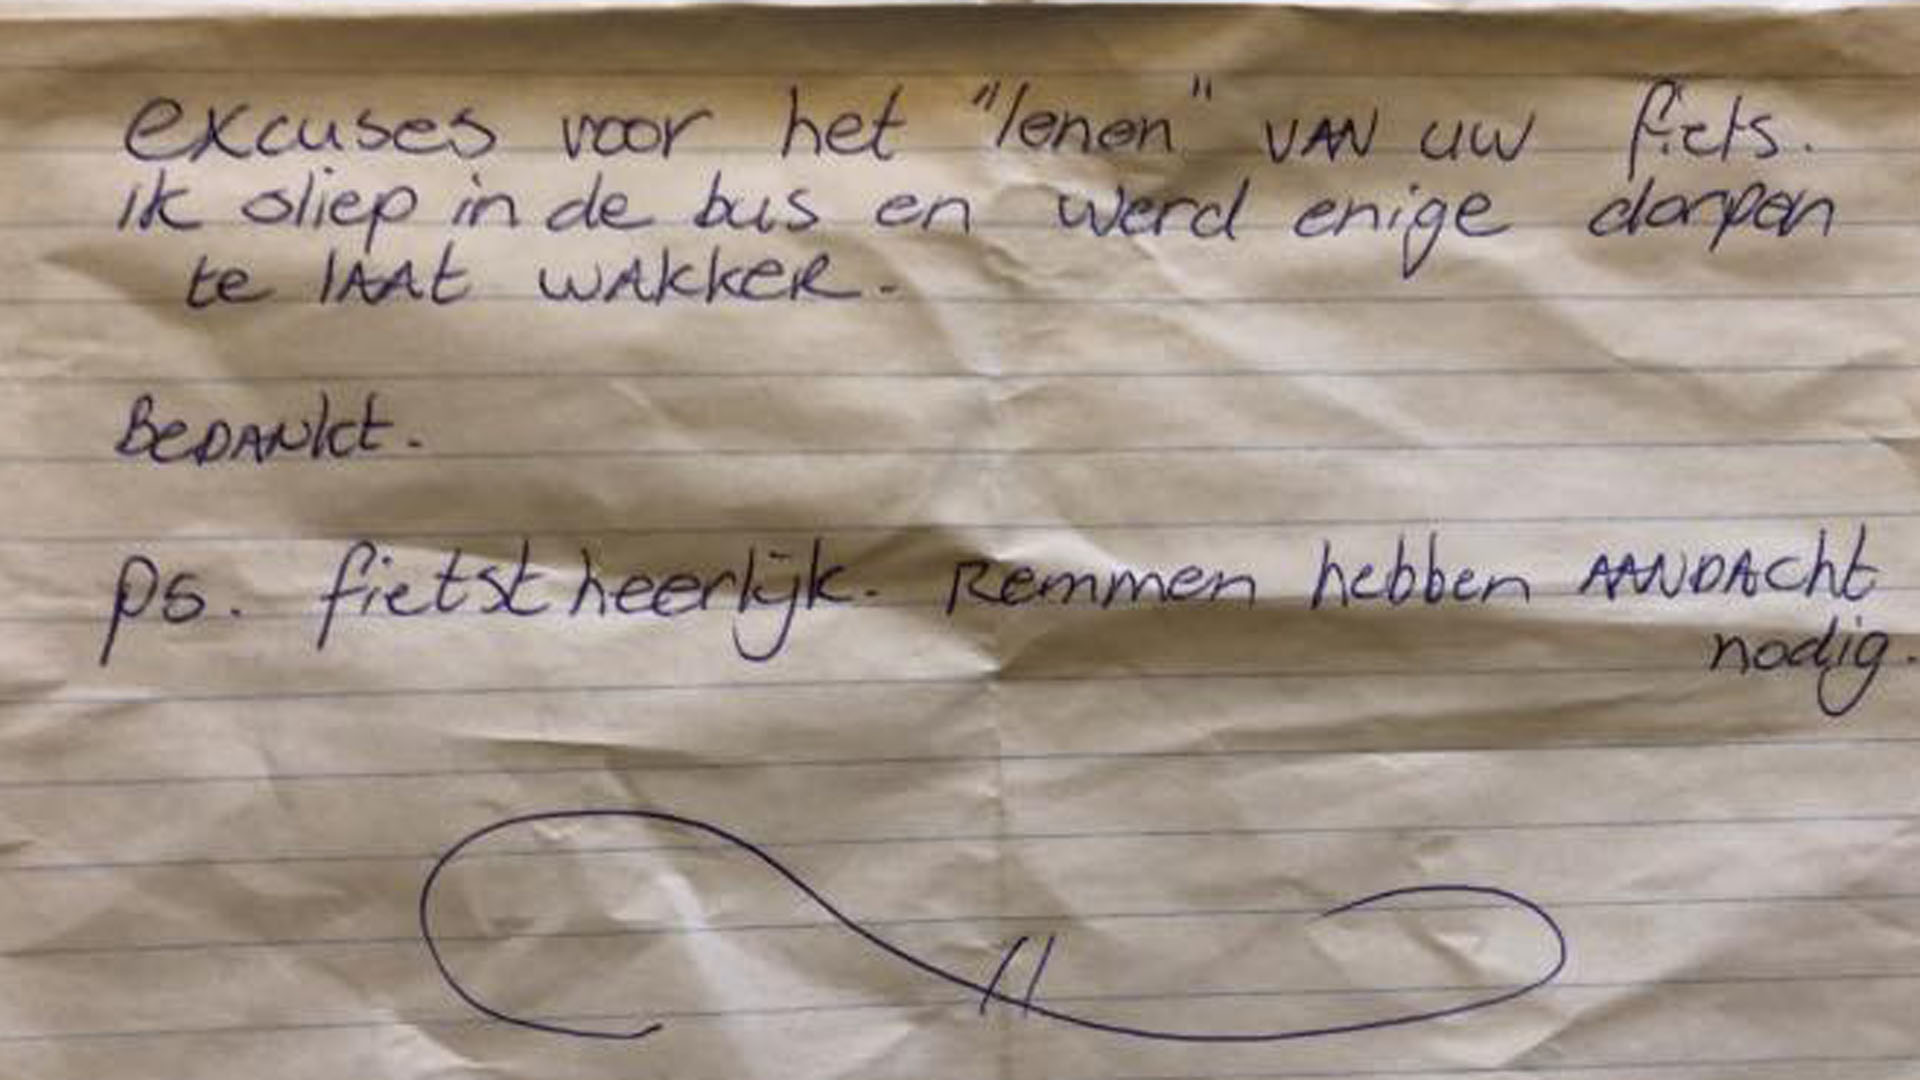 excuses voor het "lenen" VAN uw fiets.
ik sliep in de bus en werd enige dorpen
te lAAt wAkkeR.
BeDANkt.
ps. fietst heerlijk. Remmen hebben AANDAcht
nodig.